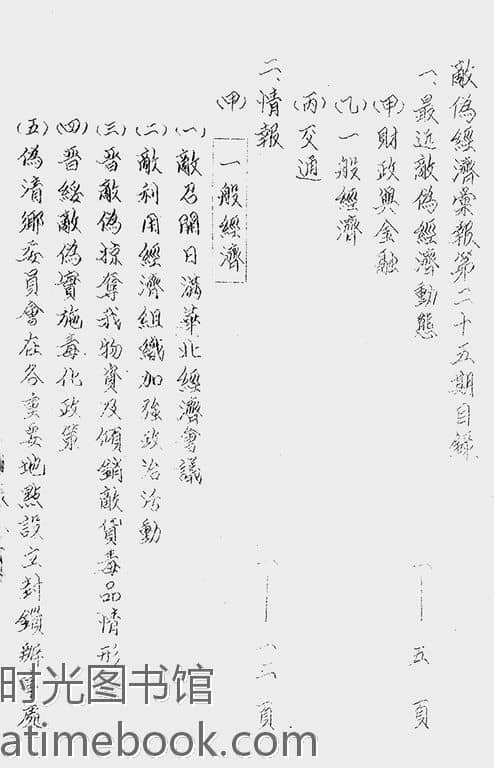 敵偽經濟彙報第二十五期目錄
一、最近敵偽經濟動態 一——五頁
(甲)財政與金融
(乙)一般經濟
(丙)交通
二、情報 六——六三頁
(甲)一般經濟
(一)敵召開日滿華北經濟會議
(二)敵利用經濟組織加強政治活動
(三)晉敵偽掠奪我物資及傾銷敵貨毒品情形
(四)晉綏敵偽實施毒化政策
(五)偽清鄉委員會在各重要地點設立封鎖辦事處
时光图书馆
atimebook.com